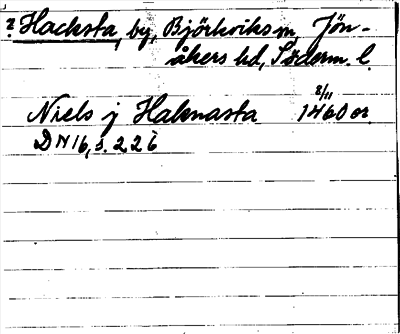 ? Hacksta, by, Björkviks sn, Jön-
åkers hd, Söderm. l.
8/11
Niels j Haknasta 1460 or.
DN 16, s. 226